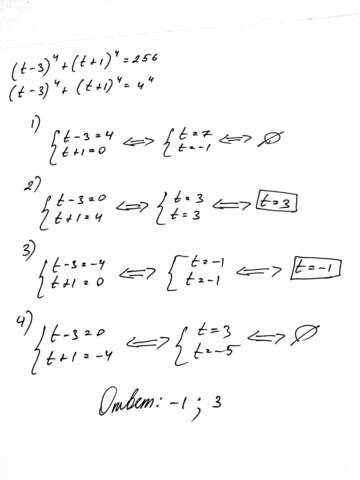 (t-3)⁴+(t+1)⁴=256
(t-3)⁴+(t+1)⁴=4⁴
1) {t-3=4 t+1=0 ⟺ {t=7 t=-1 ⟺ ∅
2) {t-3=0 t+1=4 ⟺ {t=3 t=3 ⟺ t=3
3) {t-3=-4 t+1=0 ⟺ {t=-1 t=-1 ⟺ t=-1
4) {t-3=0 t+1=-4 ⟺ {t=3 t=-5 ⟺ ∅
Ответ: -1; 3